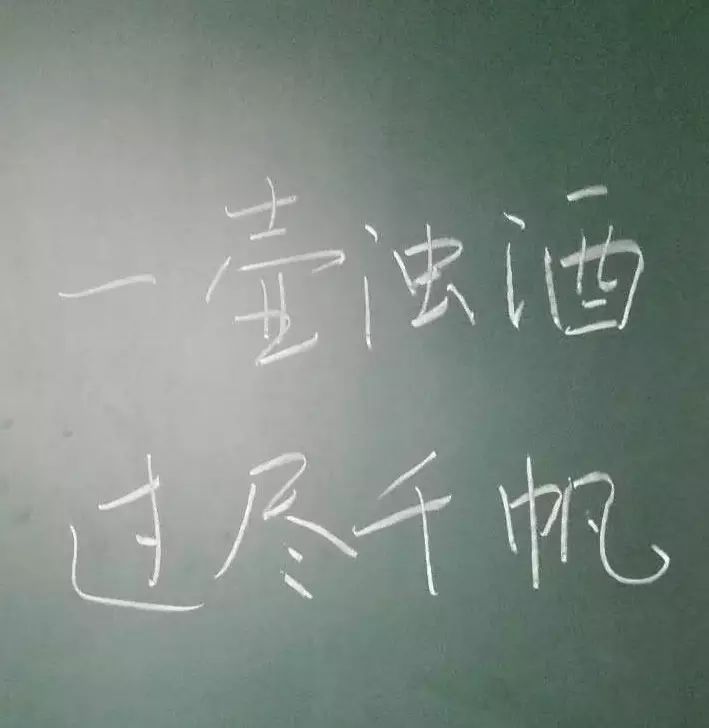 一壶浊酒
过尽千帆